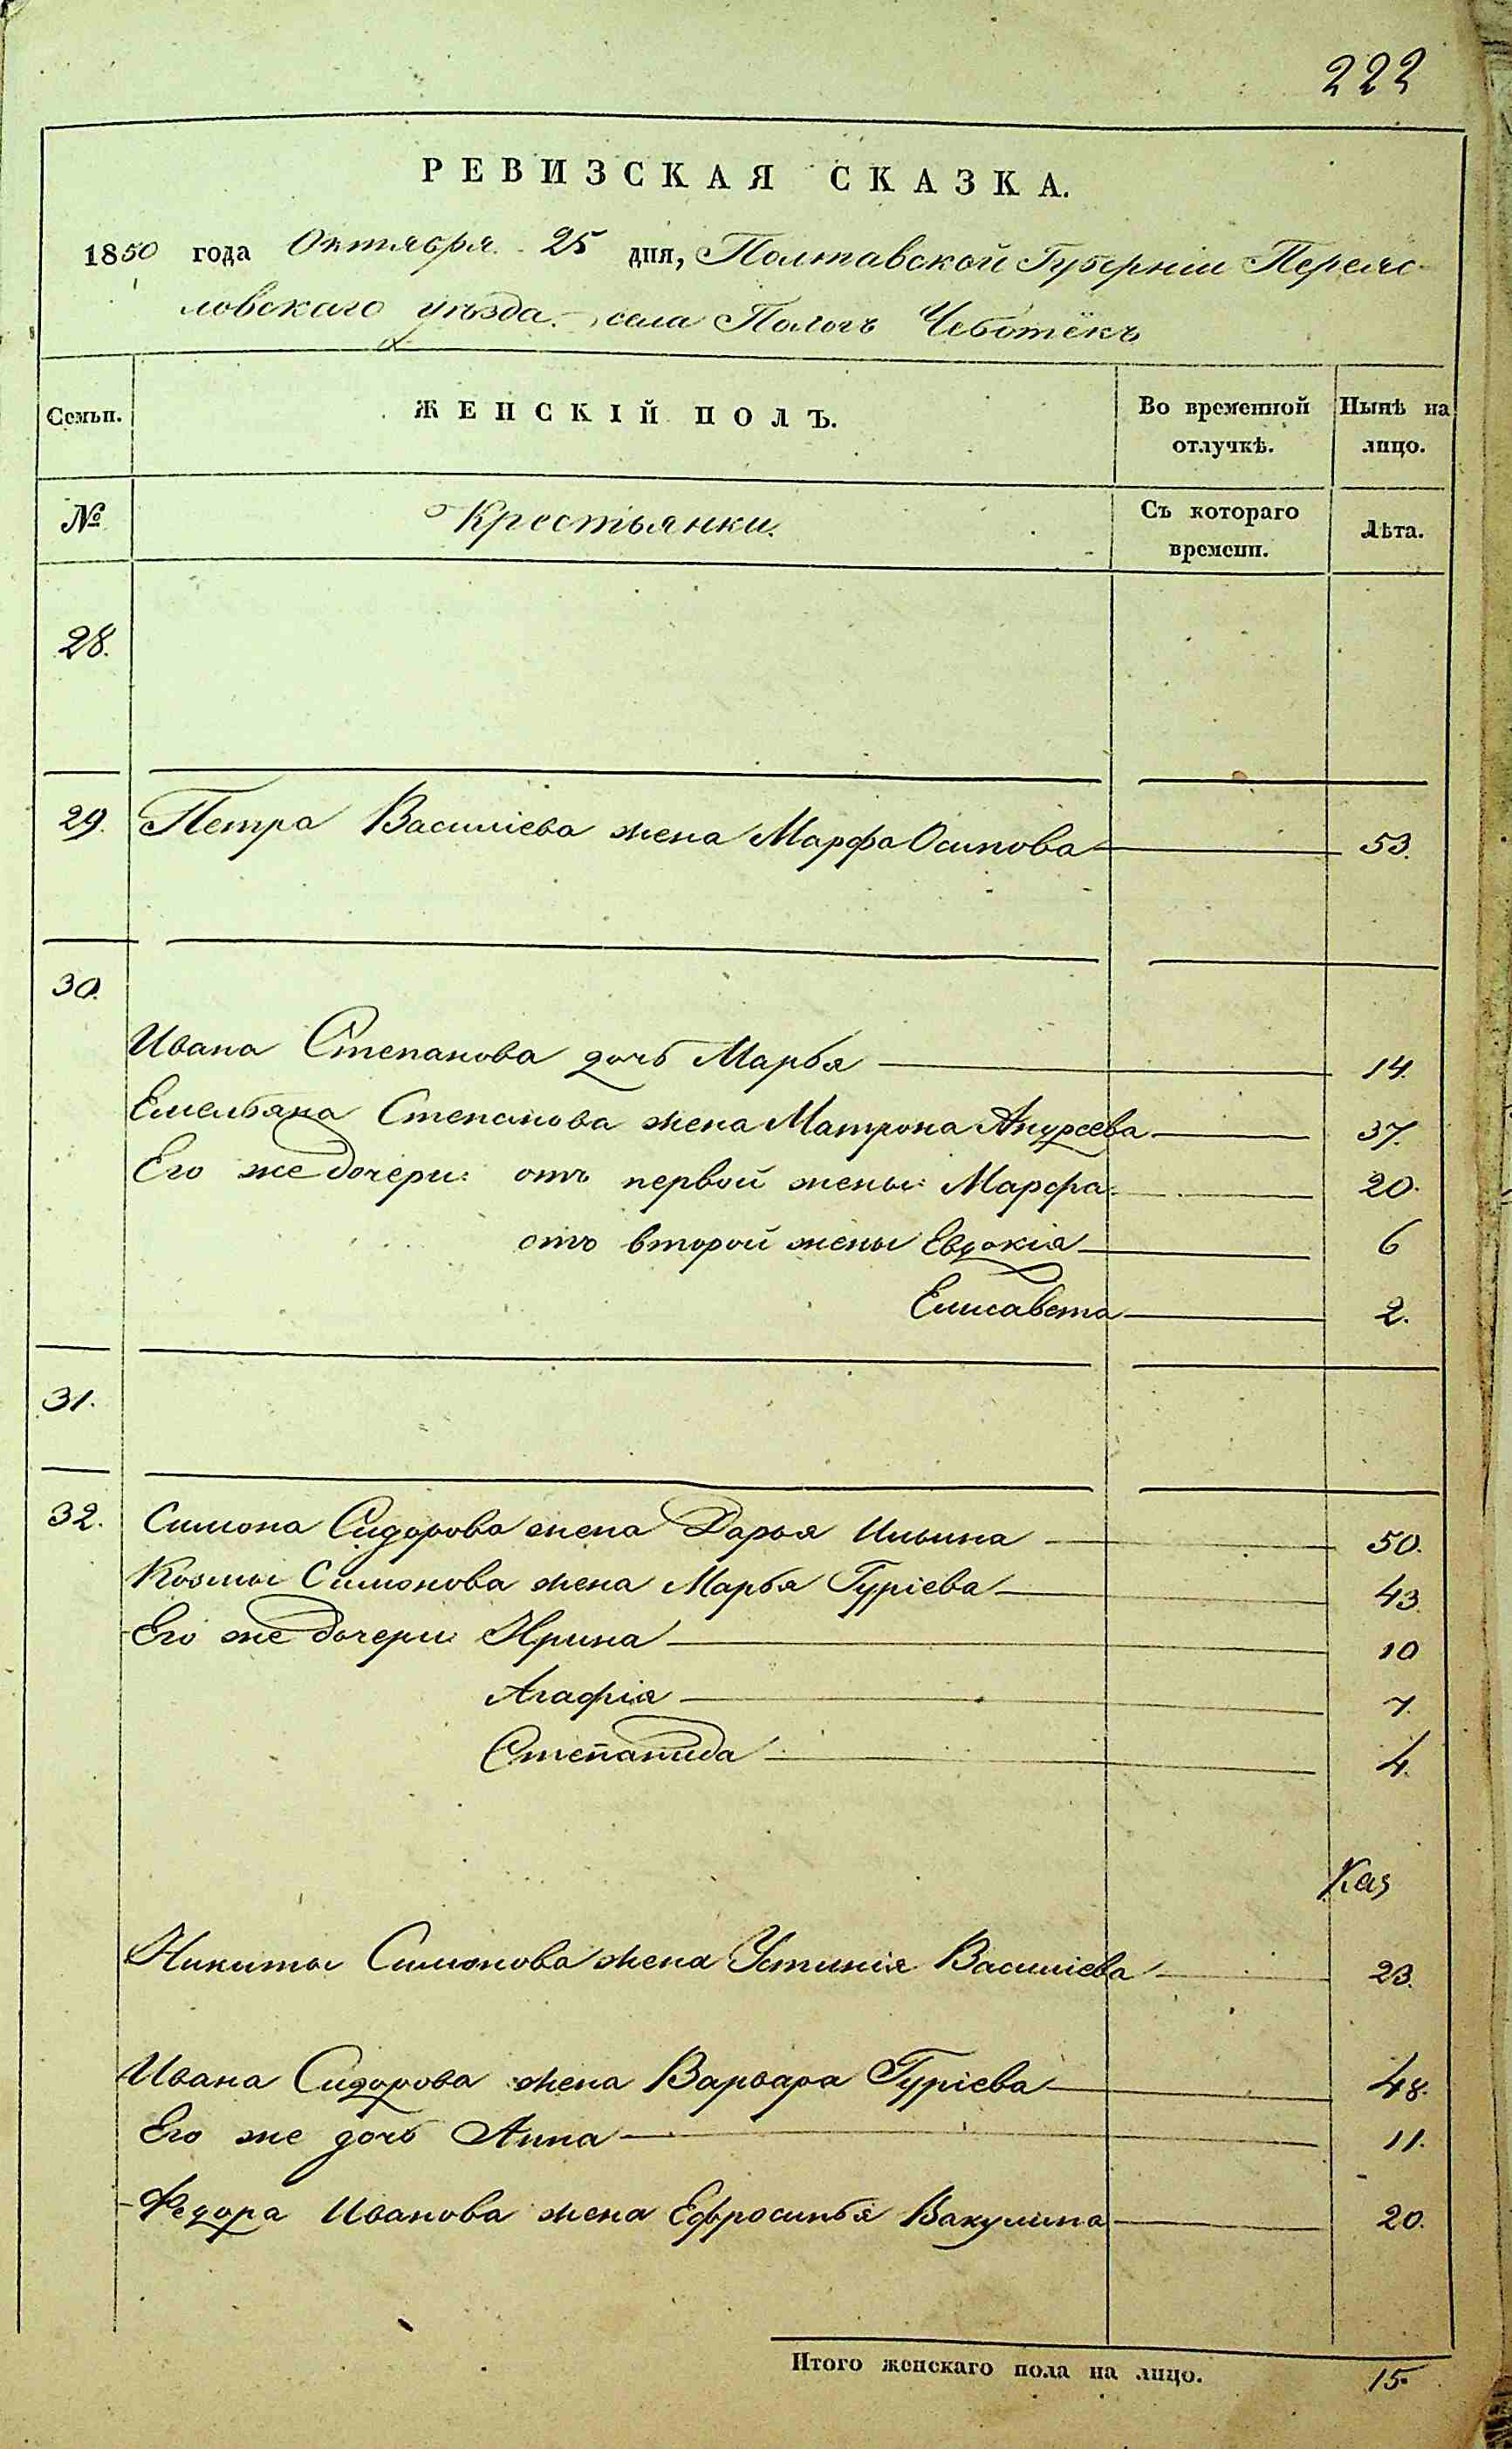 222
РЕВИЗСКАЯ СКАЗКА.
1850 года Октября 25 дня, Полтавской Губерніи Переяс-
ловскаго уѣзда села Пологъ Чеботёкъ
Семьи. ЖЕНСКІЙ ПОЛЪ. Во временной отлучкѣ. Нынѣ на лицо.
№ Крестьянки. Съ котораго времени. Лѣта.
28.
29. Петра Василіева жена Марфа Осипова 53.
30.
Ивана Степанова дочь Марья 14.
Емельяна Степанова жена Матрона Андреева 37.
Его же дочери: отъ первой жены: Марфа 20.
отъ второй жены Евдокія 6
Елисавета 2.
31.
32. Симона Сидорова жена Дарья Ильина 50.
Козмы Симонова жена Марья Гуріева 43.
Его же дочери Ирина 10
Агафія 7.
Степанида 4.
Каз
Никиты Симонова жена Устинія Василіева 23.
Ивана Сидорова жена Варвара Гуріева 48.
Его же дочь Анна 11.
Федора Иванова жена Ефросинья Вакулина 20.
Итого женскаго пола на лицо. 15.